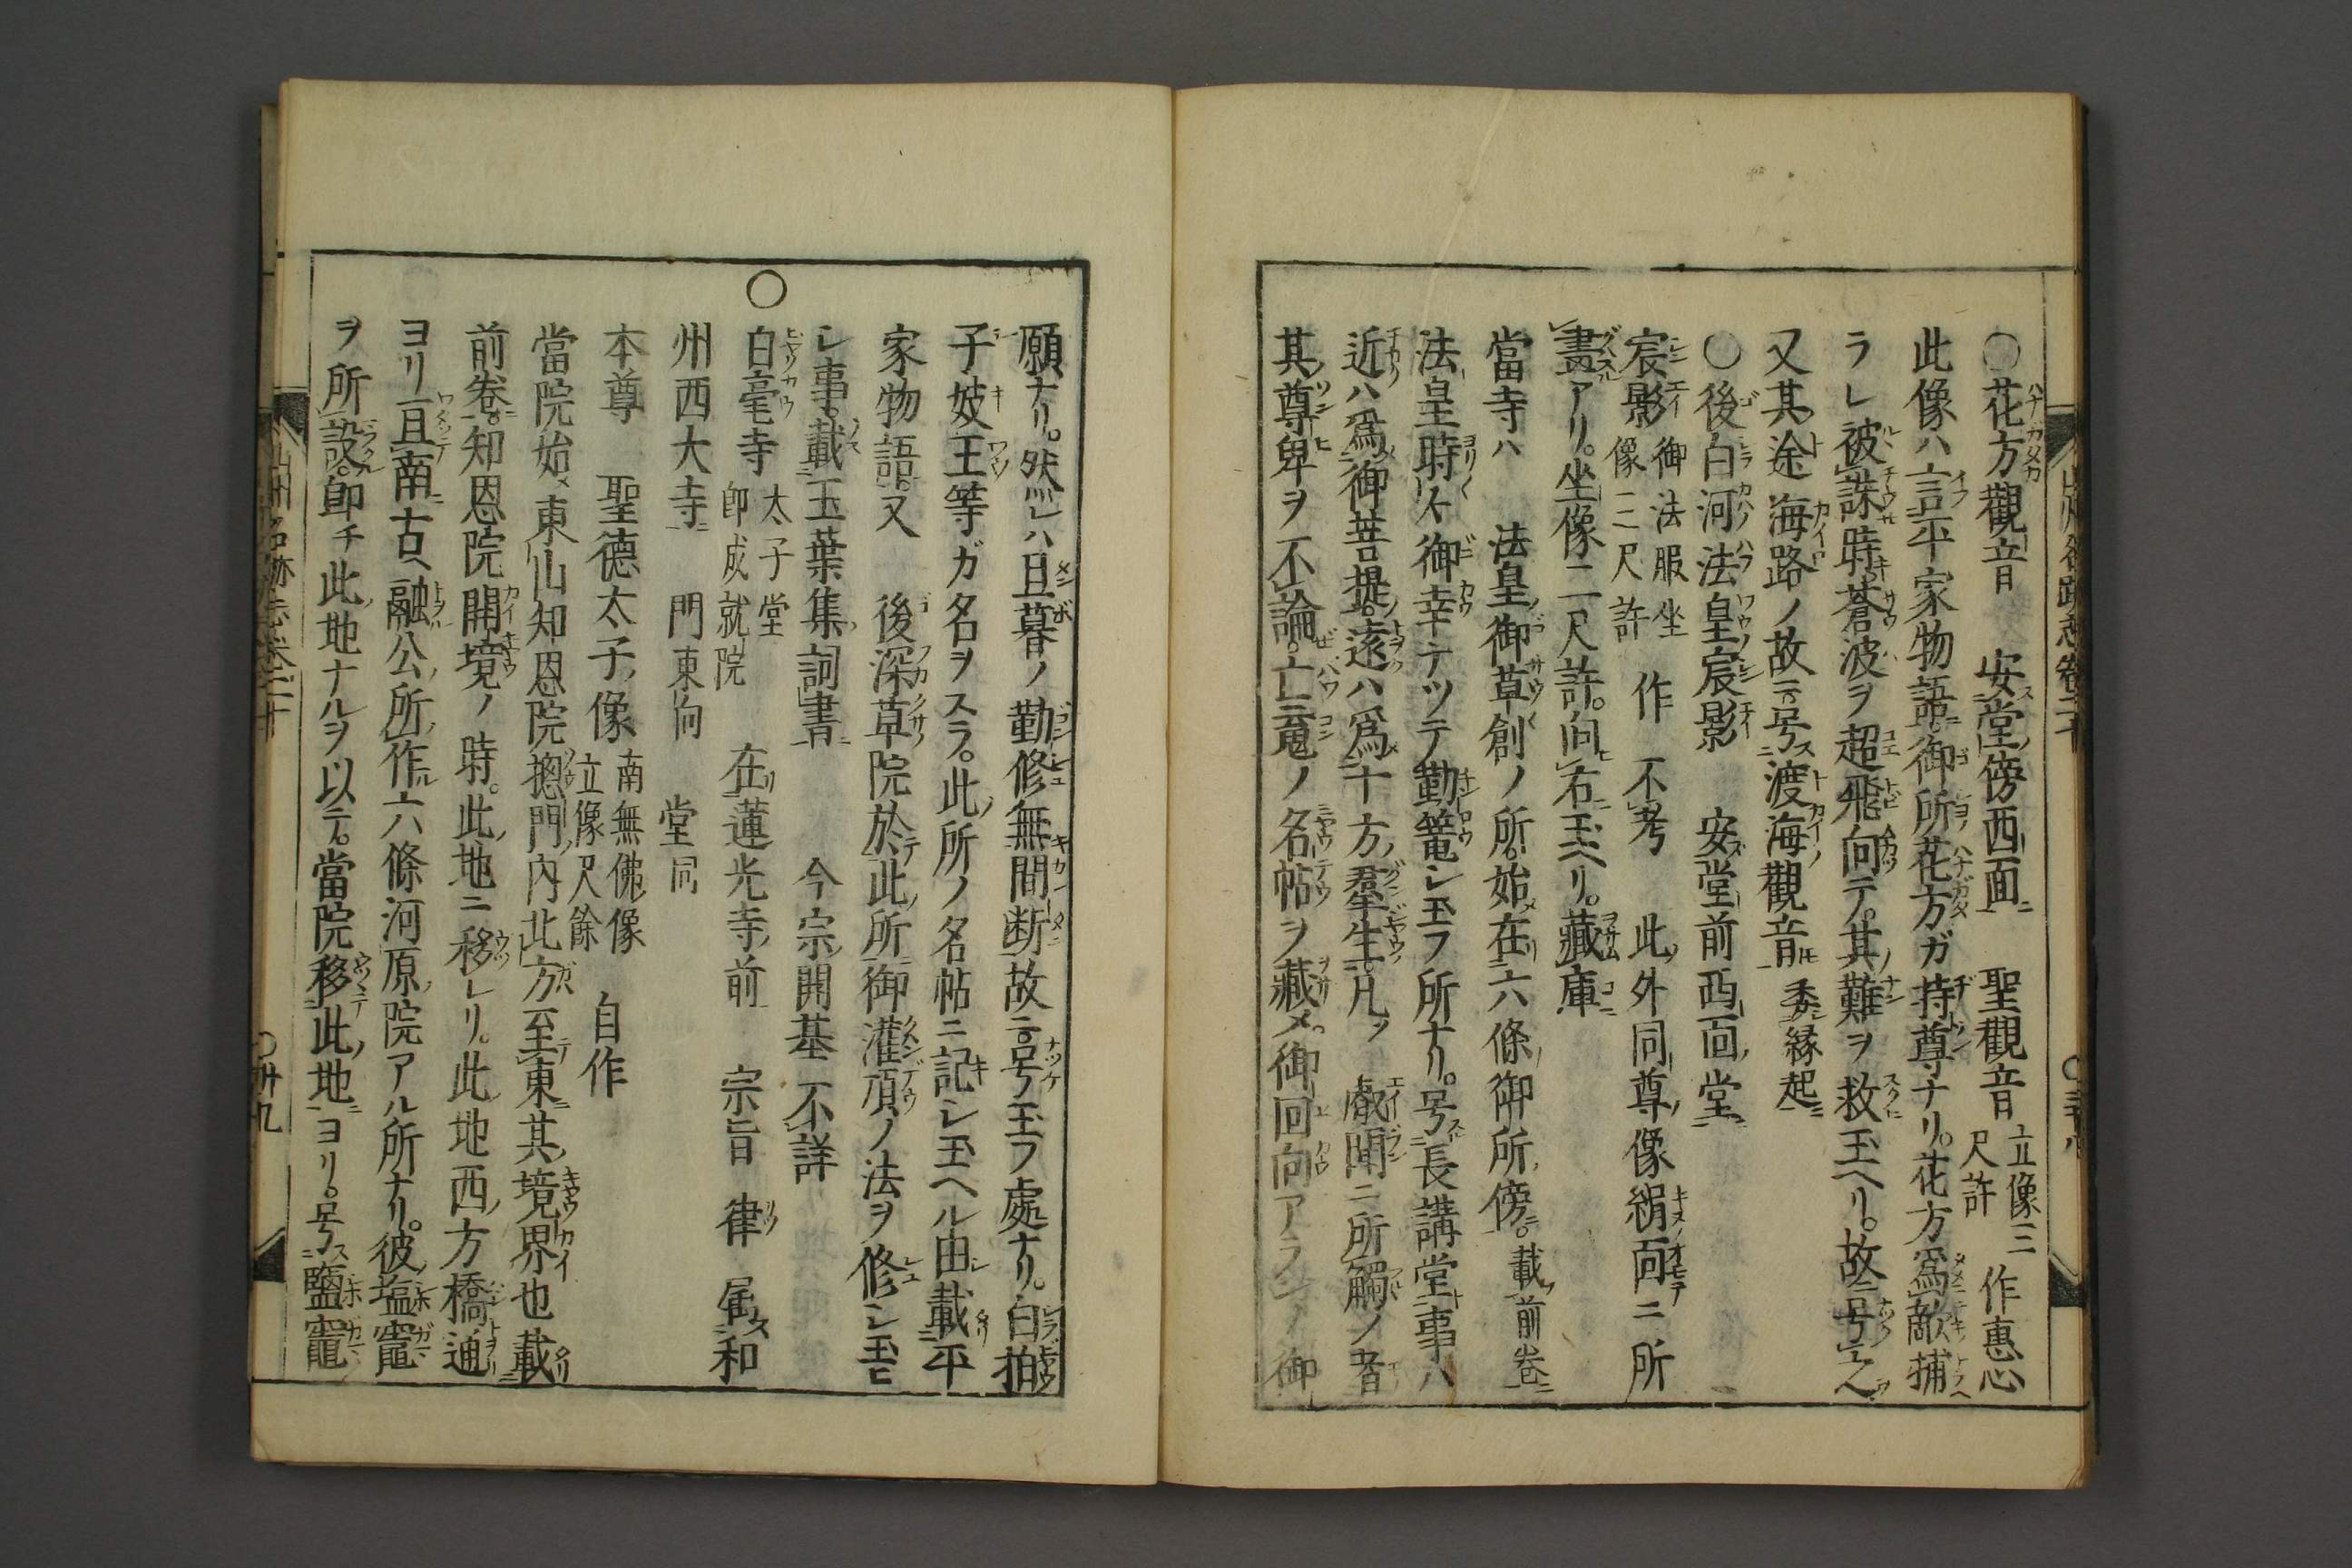 ○花方觀音　安堂傍西面　聖觀音 立像三尺許 作惠心
此像ハ言平家物語御所花方ガ持尊ナリ。花方為敵捕
ラレ被誅時蒼波ヲ超飛向テ。其難ヲ救玉ヘリ。故ニ号之
又其途海路ノ故ニ号渡海觀音 委縁起
○後白河法皇宸影　安堂前西面堂
宸影 御法服坐像三尺許 作 不考 此外同尊像絹面ニ所
畫アリ。坐像二尺許。向右玉ヘリ。藏庫
當寺ハ　法皇御草創ノ所。始在六條御所傍。載前巻
法皇時々御幸テツテ勤篭シ玉フ所ナリ。号長講堂事ハ
近ハ為御菩提。遠ハ為十方群生。凡ソ　叡聞ニ所觸ノ者
其尊卑ヲ不論。亡霊ノ名帖ヲ藏メ。御回向アラン御
願ナリ。然レハ旦暮ノ勤修無間断故ニ号玉フ處ナリ。白拍
子妓王等ガ名ヲスラ。此所ノ名帖ニ記シ玉ヘル由載平
家物語。又　後深草院於此所御灌頂ノ法ヲ修シ玉ヒ
シ事。載玉葉集詞書　今宗開基不詳
○白毫寺 太子堂 即成就院　在蓮光寺前　宗旨律属和
州西大寺　門東向　堂同
本尊　聖德太子像 南無佛像立像尺餘 自作
當院始東山知恩院摠門内此方至東其境界也載
前巻。知恩院開境ノ時。此地ニ移レリ。此地西方橋通
ヨリ且南古ヘ融公所作六條河原院アル所ナリ。彼塩竈
ヲ所設。即チ此地ナルヲ以テ。當院移此地ヨリ。号鹽竈
山州名跡志巻二十
○廿九